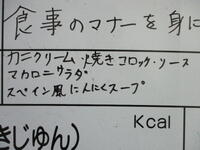 食事のマナーを身に
カニクリーム・焼きコロッケ・ソース
マカロニサラダ
スペイン風にんにくスープ
Kcal
きじゅん)